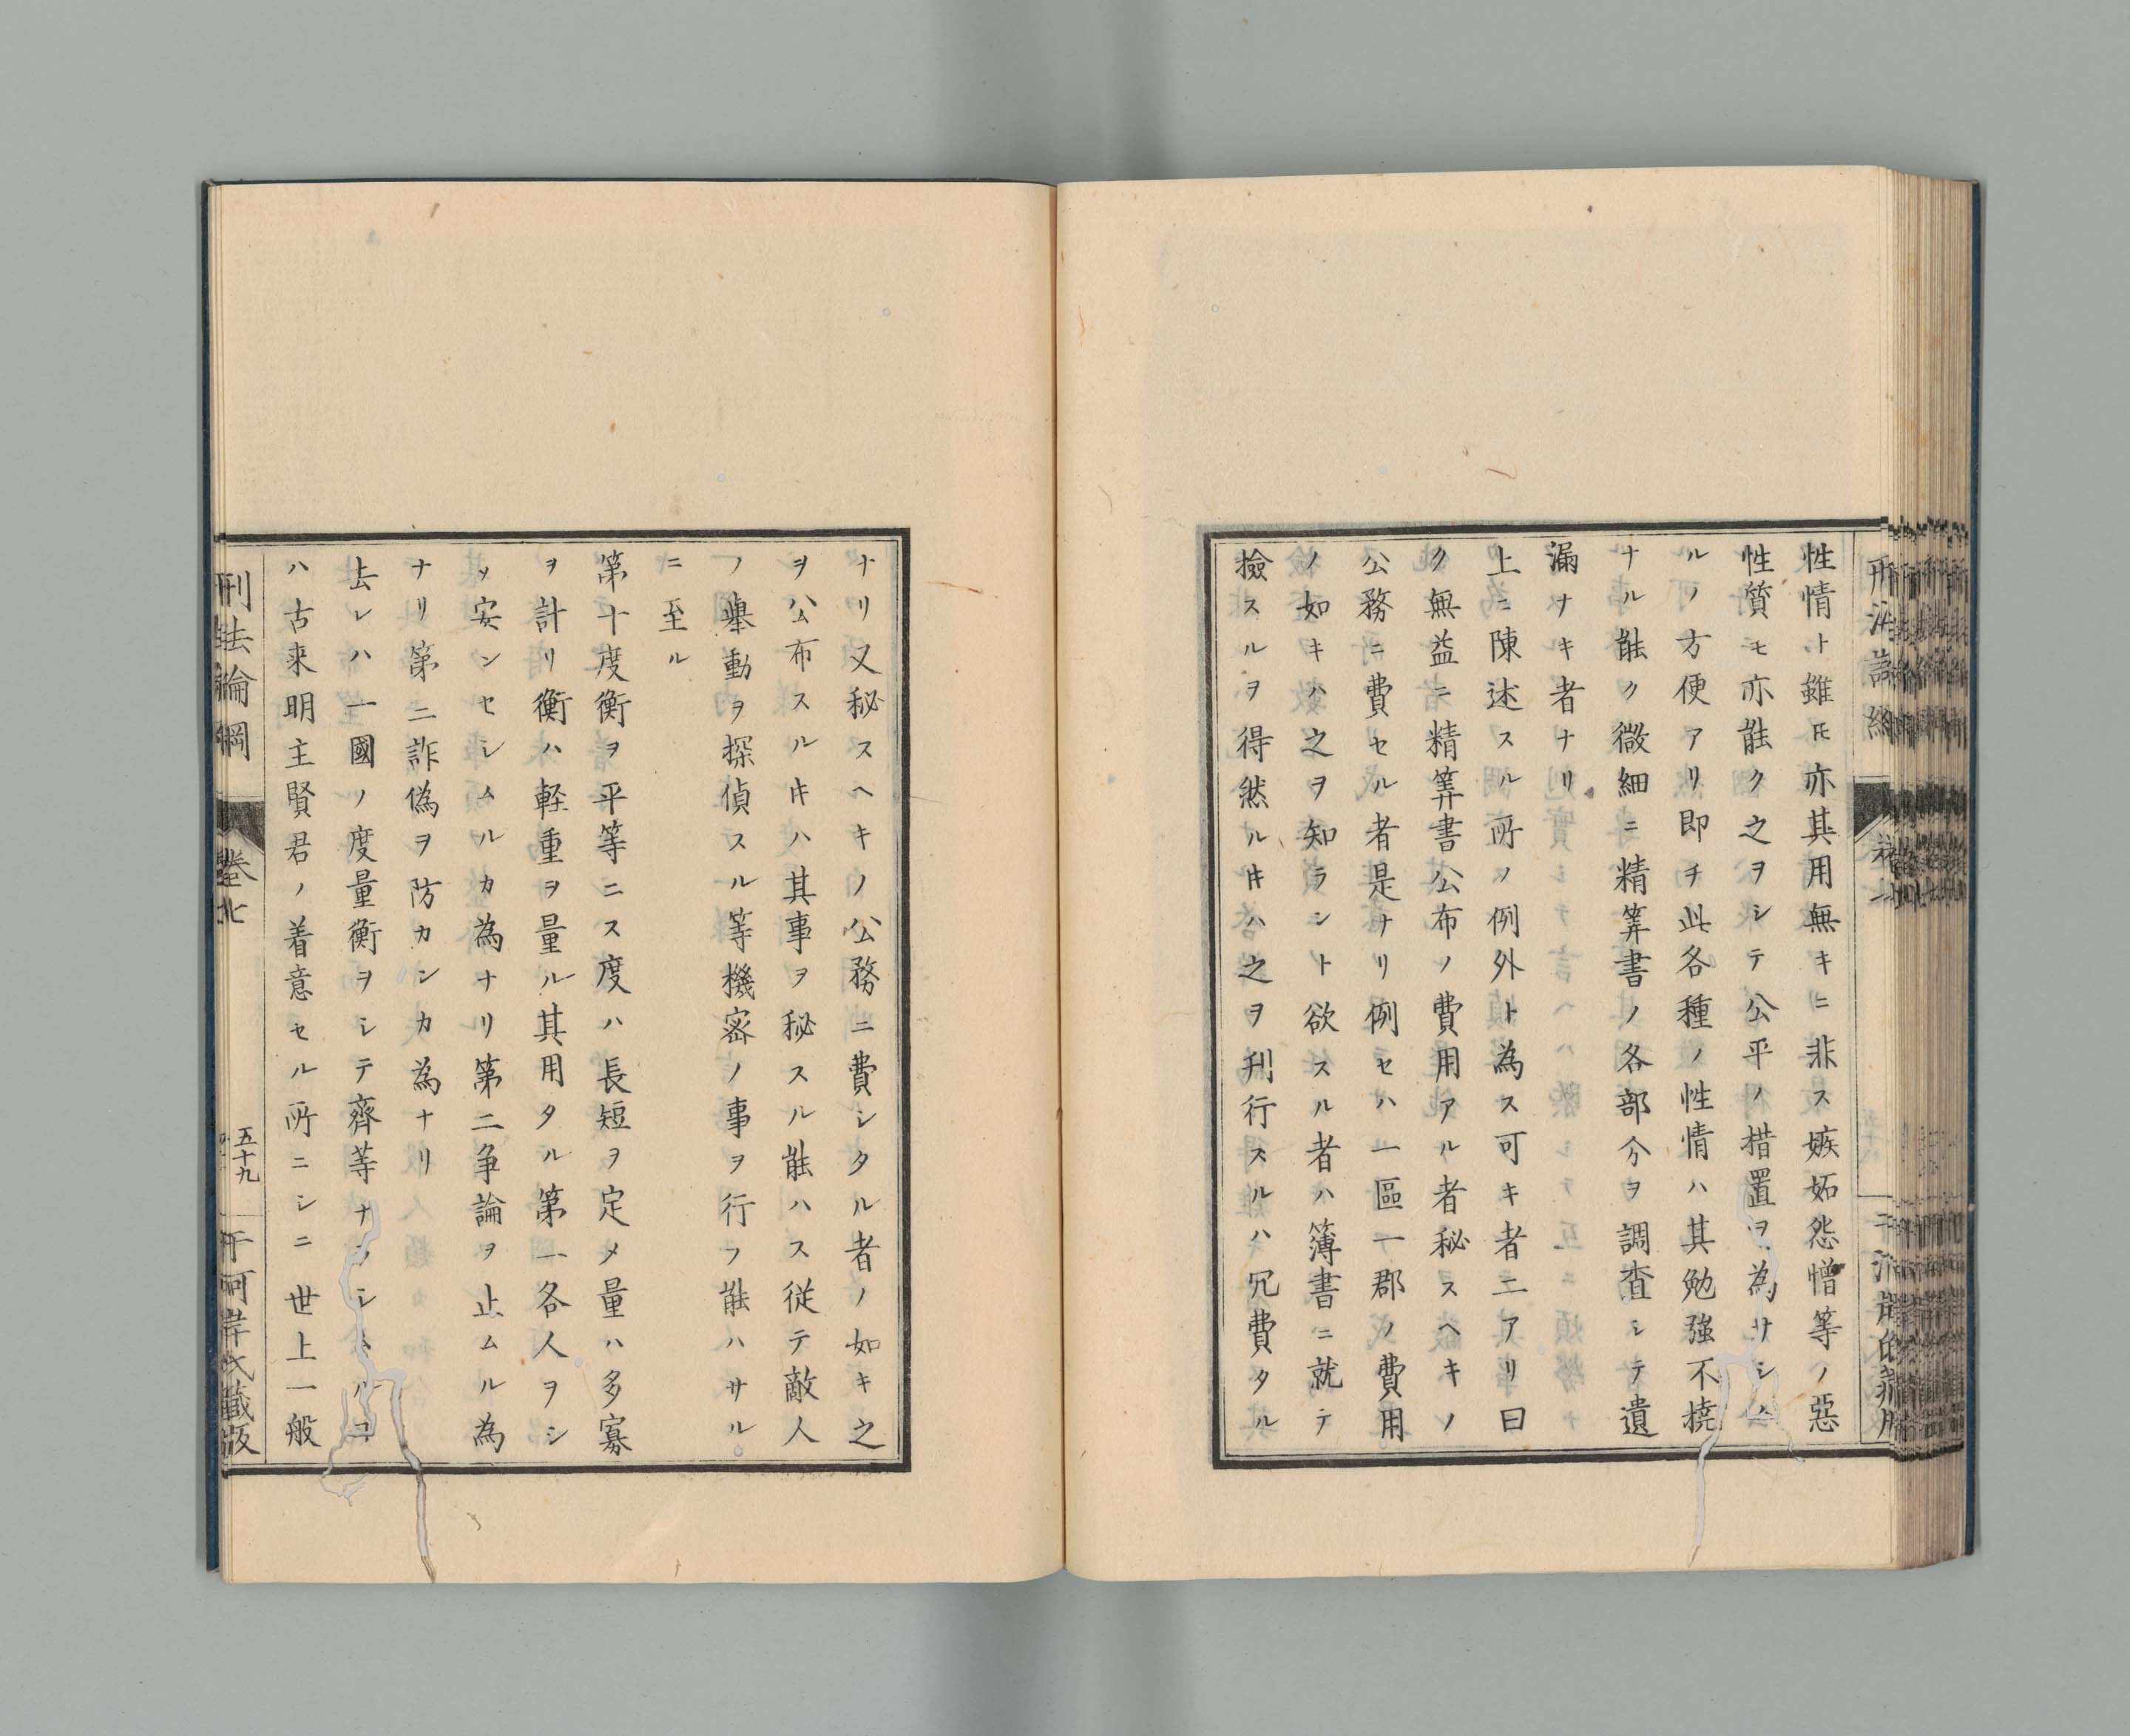 性情ト雖𪜈亦其用無キニ非ス嫉妬怨憎等ノ惡
性質モ亦能ク之ヲシテ公平ノ措置ヲ為サシム
ルノ方便アリ即チ此各種ノ性情ハ其勉強不撓
ナル能ク微細ニ精筭書ノ各部分ヲ調査シテ遺
漏ナキ者ナリ
上ニ陳述スル所ノ例外ト為ス可キ者二アリ曰
ク無益ニ精筭書公布ノ費用アル者秘スヘキノ
公務ニ費セル者是ナリ例セハ一區一郡ノ費用
ノ如キハ之ヲ知ラント欲スル者ハ簿書ニ就テ
撿スルヲ得然ル𪜈ハ之ヲ刊行スルハ冗費タル
ナリ又秘スヘキノ公務ニ費シタル者ノ如キ之
ヲ公布スル𪜈ハ其事ヲ秘スル能ハス従テ敵人
ノ舉動ヲ探偵スル等機密ノ事ヲ行フ能ハサル
ニ至ル
第十度衡ヲ平等ニス度ハ長短ヲ定メ量ハ多寡
ヲ計リ衡ハ軽重ヲ量ル其用タル第一各人ヲシ
テ安ンセシムルカ為ナリ第二争論ヲ止ムル為
ナリ第三詐偽ヲ防カンカ為ナリ
去レハ一國ノ度量衡ヲシテ齊等ナラシムルヿ
ハ古来明主賢君ノ着意セル所ニシニ世上一般
刑法論綱
卷七
五十九
干河岸氏藏版